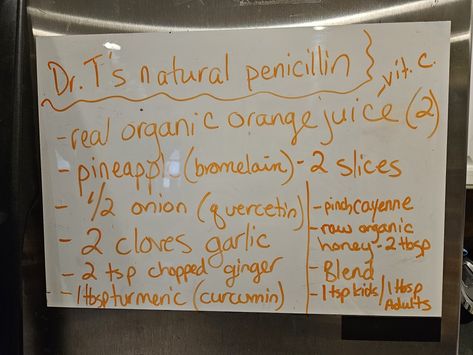 Dr. T's natural penicillin
vit. c.
-real organic orange juice (2)
- pineapple (bromelain) - 2 slices
- 1/2 onion (quercetin)
- 2 cloves garlic
- 2 tsp chopped ginger
- 1tbsp turmeric (curcumin)
- pinch cayenne
- raw organic
honey - 2 tbsp
- Blend
- 1 tsp kids / 1 tbsp
Adults